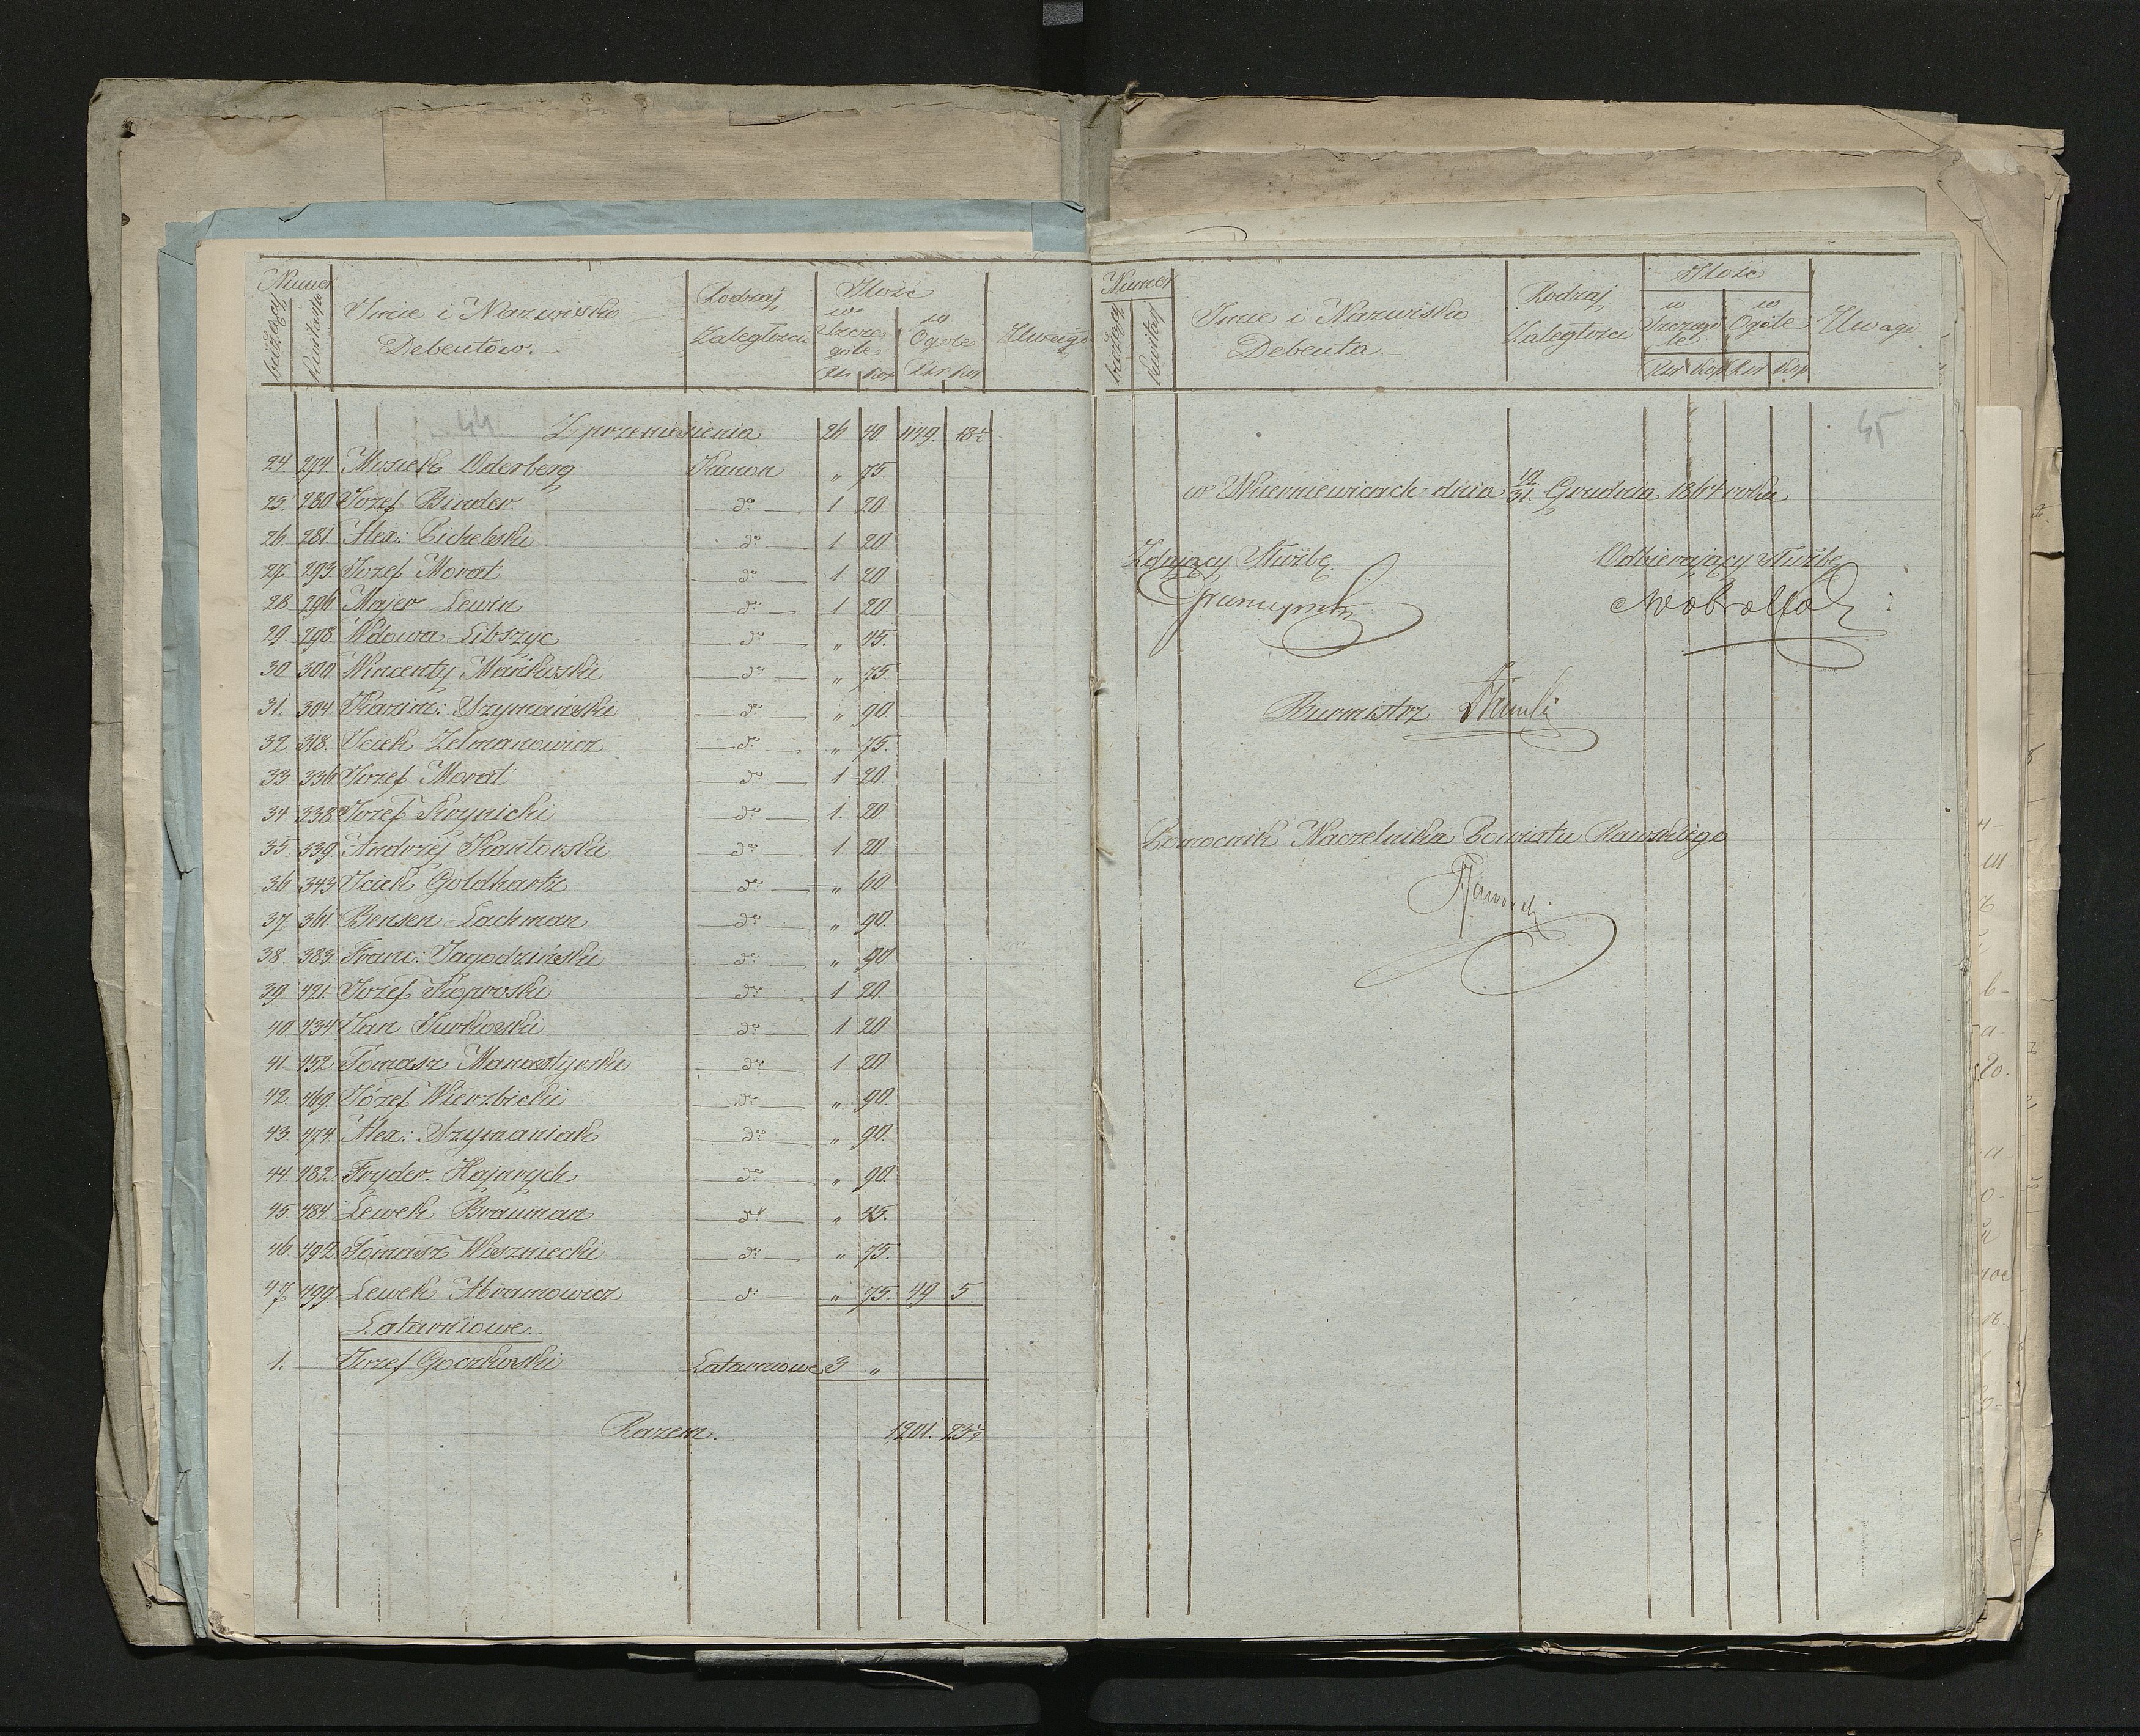 Numer
bieżący
kwitarj.
Imie i Nazwisko
Debentów.
Rodzaj
Zaległości
Ilość
w
Szcze-
góle
w
Ogóle
Rsr kop
Rsr kop
Uwagi
44
Z przeniesienia 26 40 1149. 18½
24. 274. Mosiek Oderberg Kanon „ 75.
25. 280 Jozef Binder do 1 20.
26. 281. Alex: Pichelski do 1 20
27. 293. Jozef Morat do 1 20
28 296 Majer Lewin do 1 20.
29. 298. Wdowa Libszyc do „ 45.
30 300 Wincenty Mańkuski do „ 75.
31. 304 Kazim: Szymański do „ 90.
32. 318. Iciek Zelmanowicz do „ 75.
33. 336 Jozef Morat do 1 20.
34 338 Jozef Krynicki do 1. 20.
35. 339. Andrzéj Kantorski do 1. 20
36 343 Iciek Goldhartz do „ 60
37. 361. Bensen Lachman do „ 90.
38. 383 Franc: Jagodziński do „ 90.
39. 421. Jozef Koproski do 1 20.
40. 434 Jan Jurkoski do 1 20
41. 452. Tomasz Manastyrski do 1 20.
42. 469. Józef Wierzbicki do „ 90.
43. 474. Alex: Szymaniak do „ 90.
44. 482. Fryder. Hajnrych do „ 90.
45. 484. Lewek Brauman do „ 45.
46 492. Tomasz Wiszniecki do „ 75.
47. 499. Lewek Abramowicz do „ 75. 49 5
Latarniowe.
1. Jozef Goczkowski Latarniowe 3 „
Razem. 1201. 23½
Numer
bieżący
kwitarj.
Imie i Nazwisko
Debenta.
Rodzaj
Zaległości
Ilość
w
Szczegó-
le
w
Ogóle
Rsr kop Rsr kop
Uwagi
45
w Skierniewicach dnia 19/31. Grudnia 1864 roku
Zdający Służbę
Odbierający służbę
Burmistrz
Pomocnik Naczelnika Powiatu Rawskiego